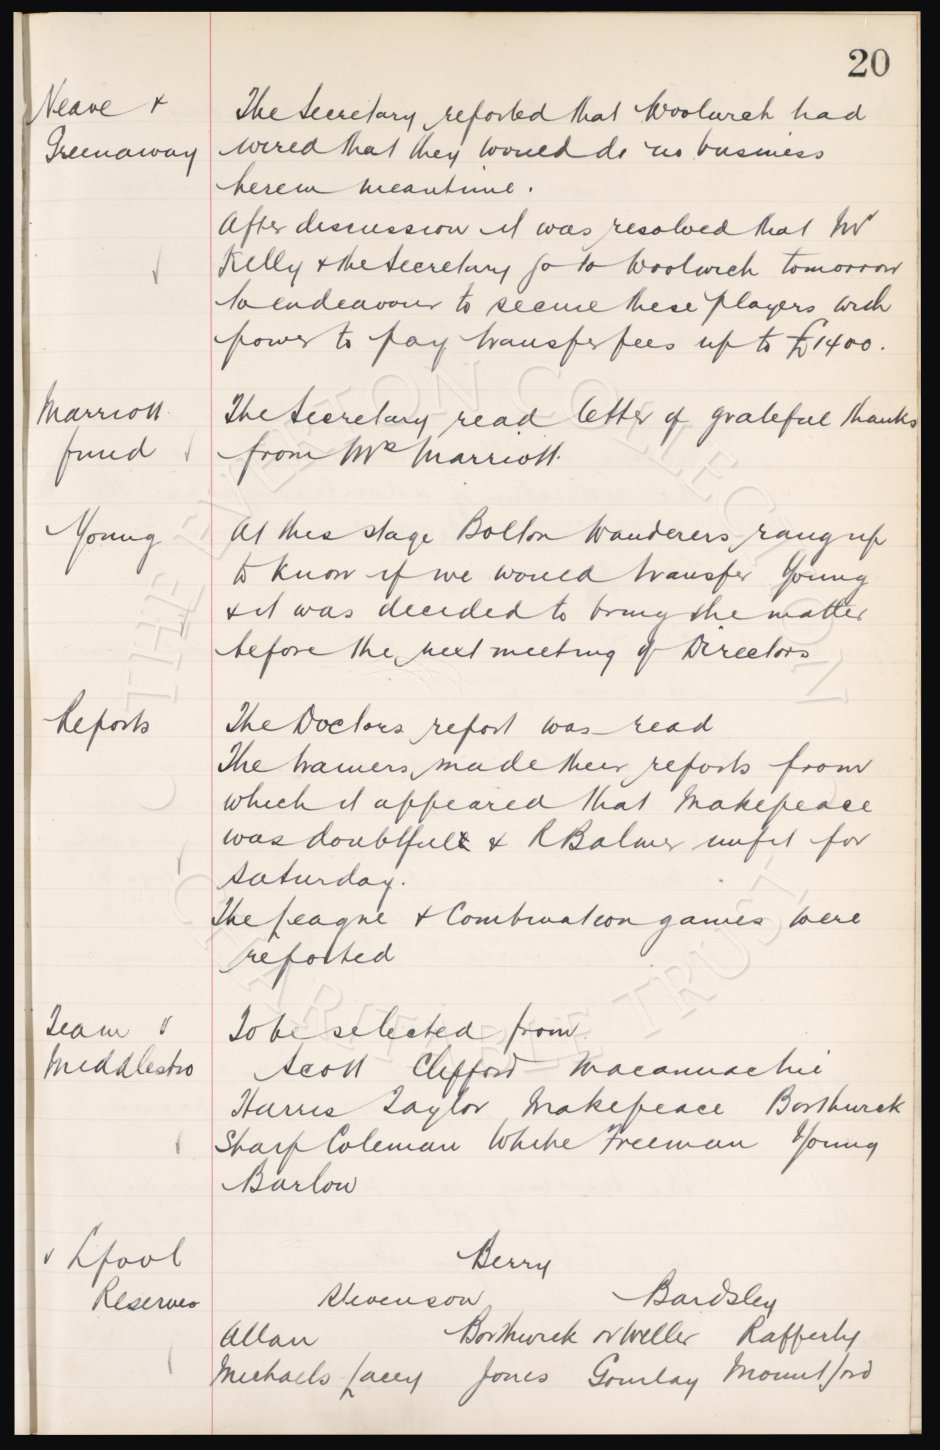 20
Neave &
Greenaway
The Secretary reported that Woolwich had
wired that they would do no business
herein meantime.
After discussion it was resolved that Mr
Kelly & the Secretary go to Woolwich tomorrow
to endeavour to secure these players with
power to pay transfer fees up to £1400.
Marriott
fund
The Secretary read letter of grateful thanks
from Mr Marriott.
Young
At this stage Bolton Wanderers rang up
to know if we would transfer Young
& it was decided to bring the matter
before the next meeting of Directors
Reports
The Doctors report was read
The trainers made their reports from
which it appeared that Makepeace
was doubtful & R Balmer unfit for
Saturday.
The League & Combination games were
reported
Team v
Middlesbro
To be selected from
Scott Clifford Maconnachie
Harris Taylor Makepeace Borthwick
Sharp Coleman White Freeman Young
Barlow
v Lpool
Reserves
Berry
Stevenson Bardsley
Allan Borthwick or Weller Rafferty
Michaels Lacey Jones Gourlay Mountford
THE EVERTON COLLECTION
CHARITABLE TRUST